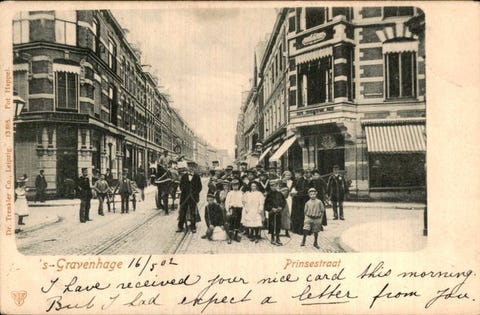 's-Gravenhage 16/5 02 Prinsestraat
I have received your nice card this morning.
But I had expect a letter from you.
Dr. Trenkler Co., Leipzig